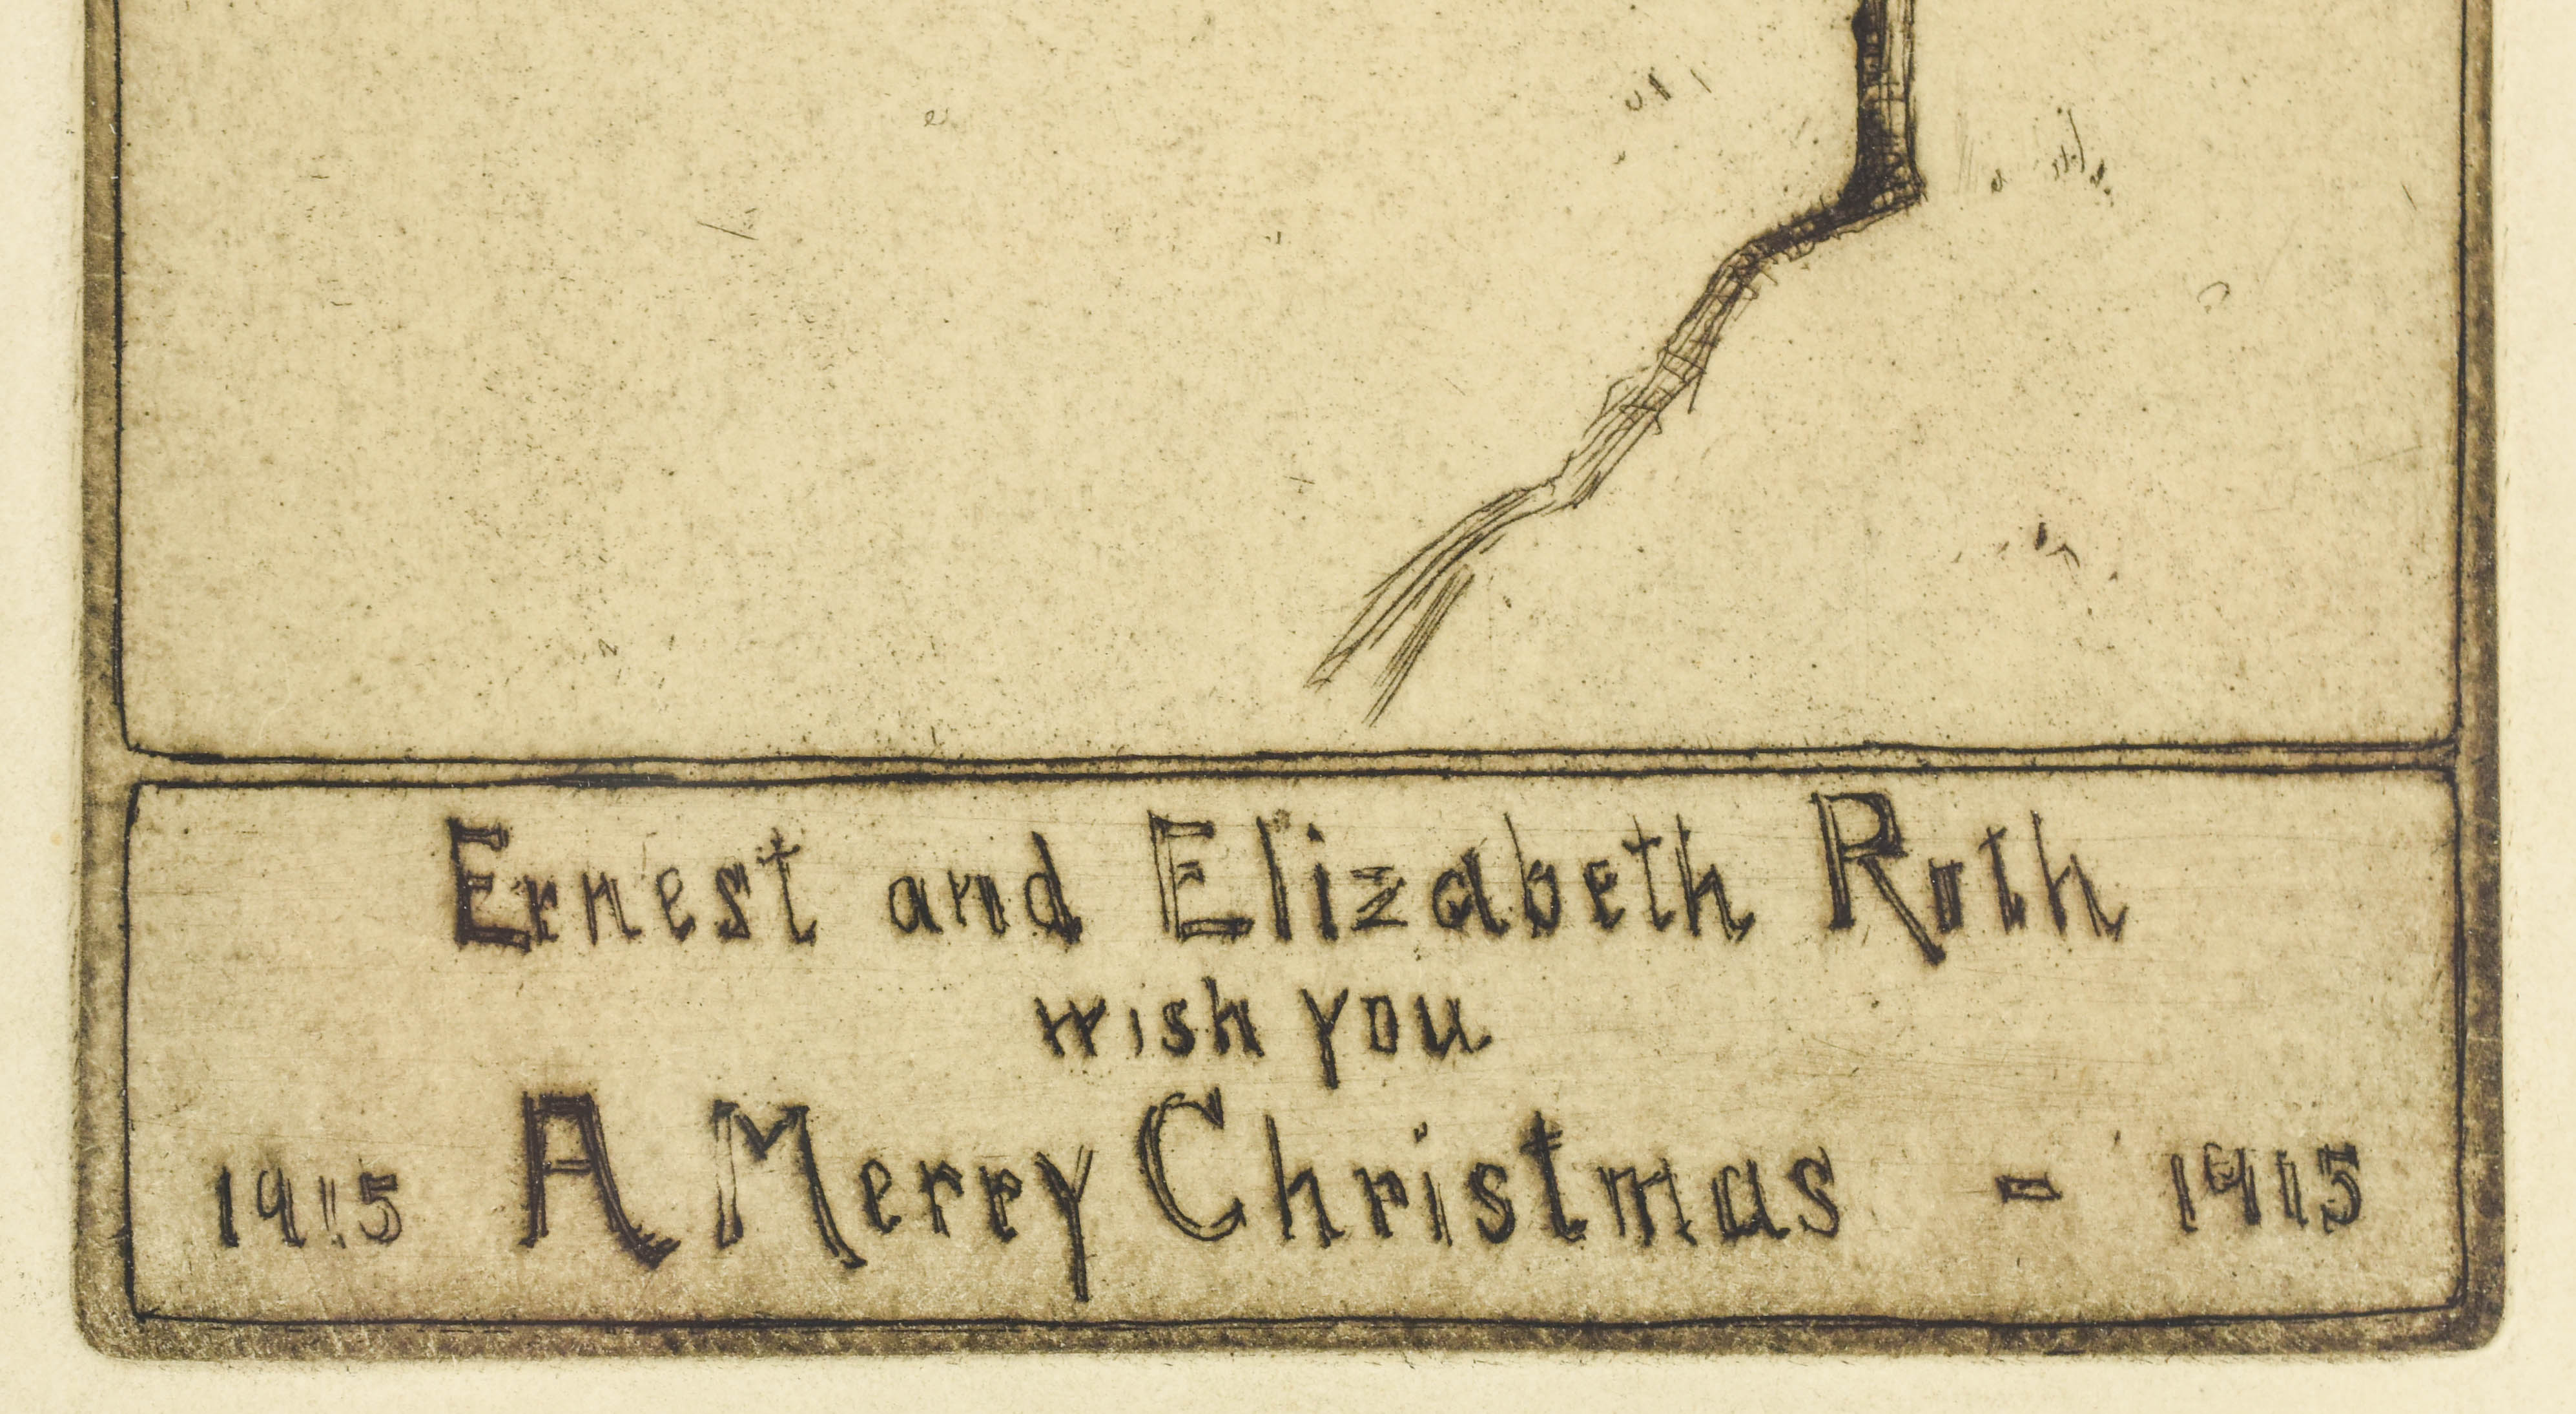 Ernest and Elizabeth Roth
wish you
1915 A Merry Christmas - 1915